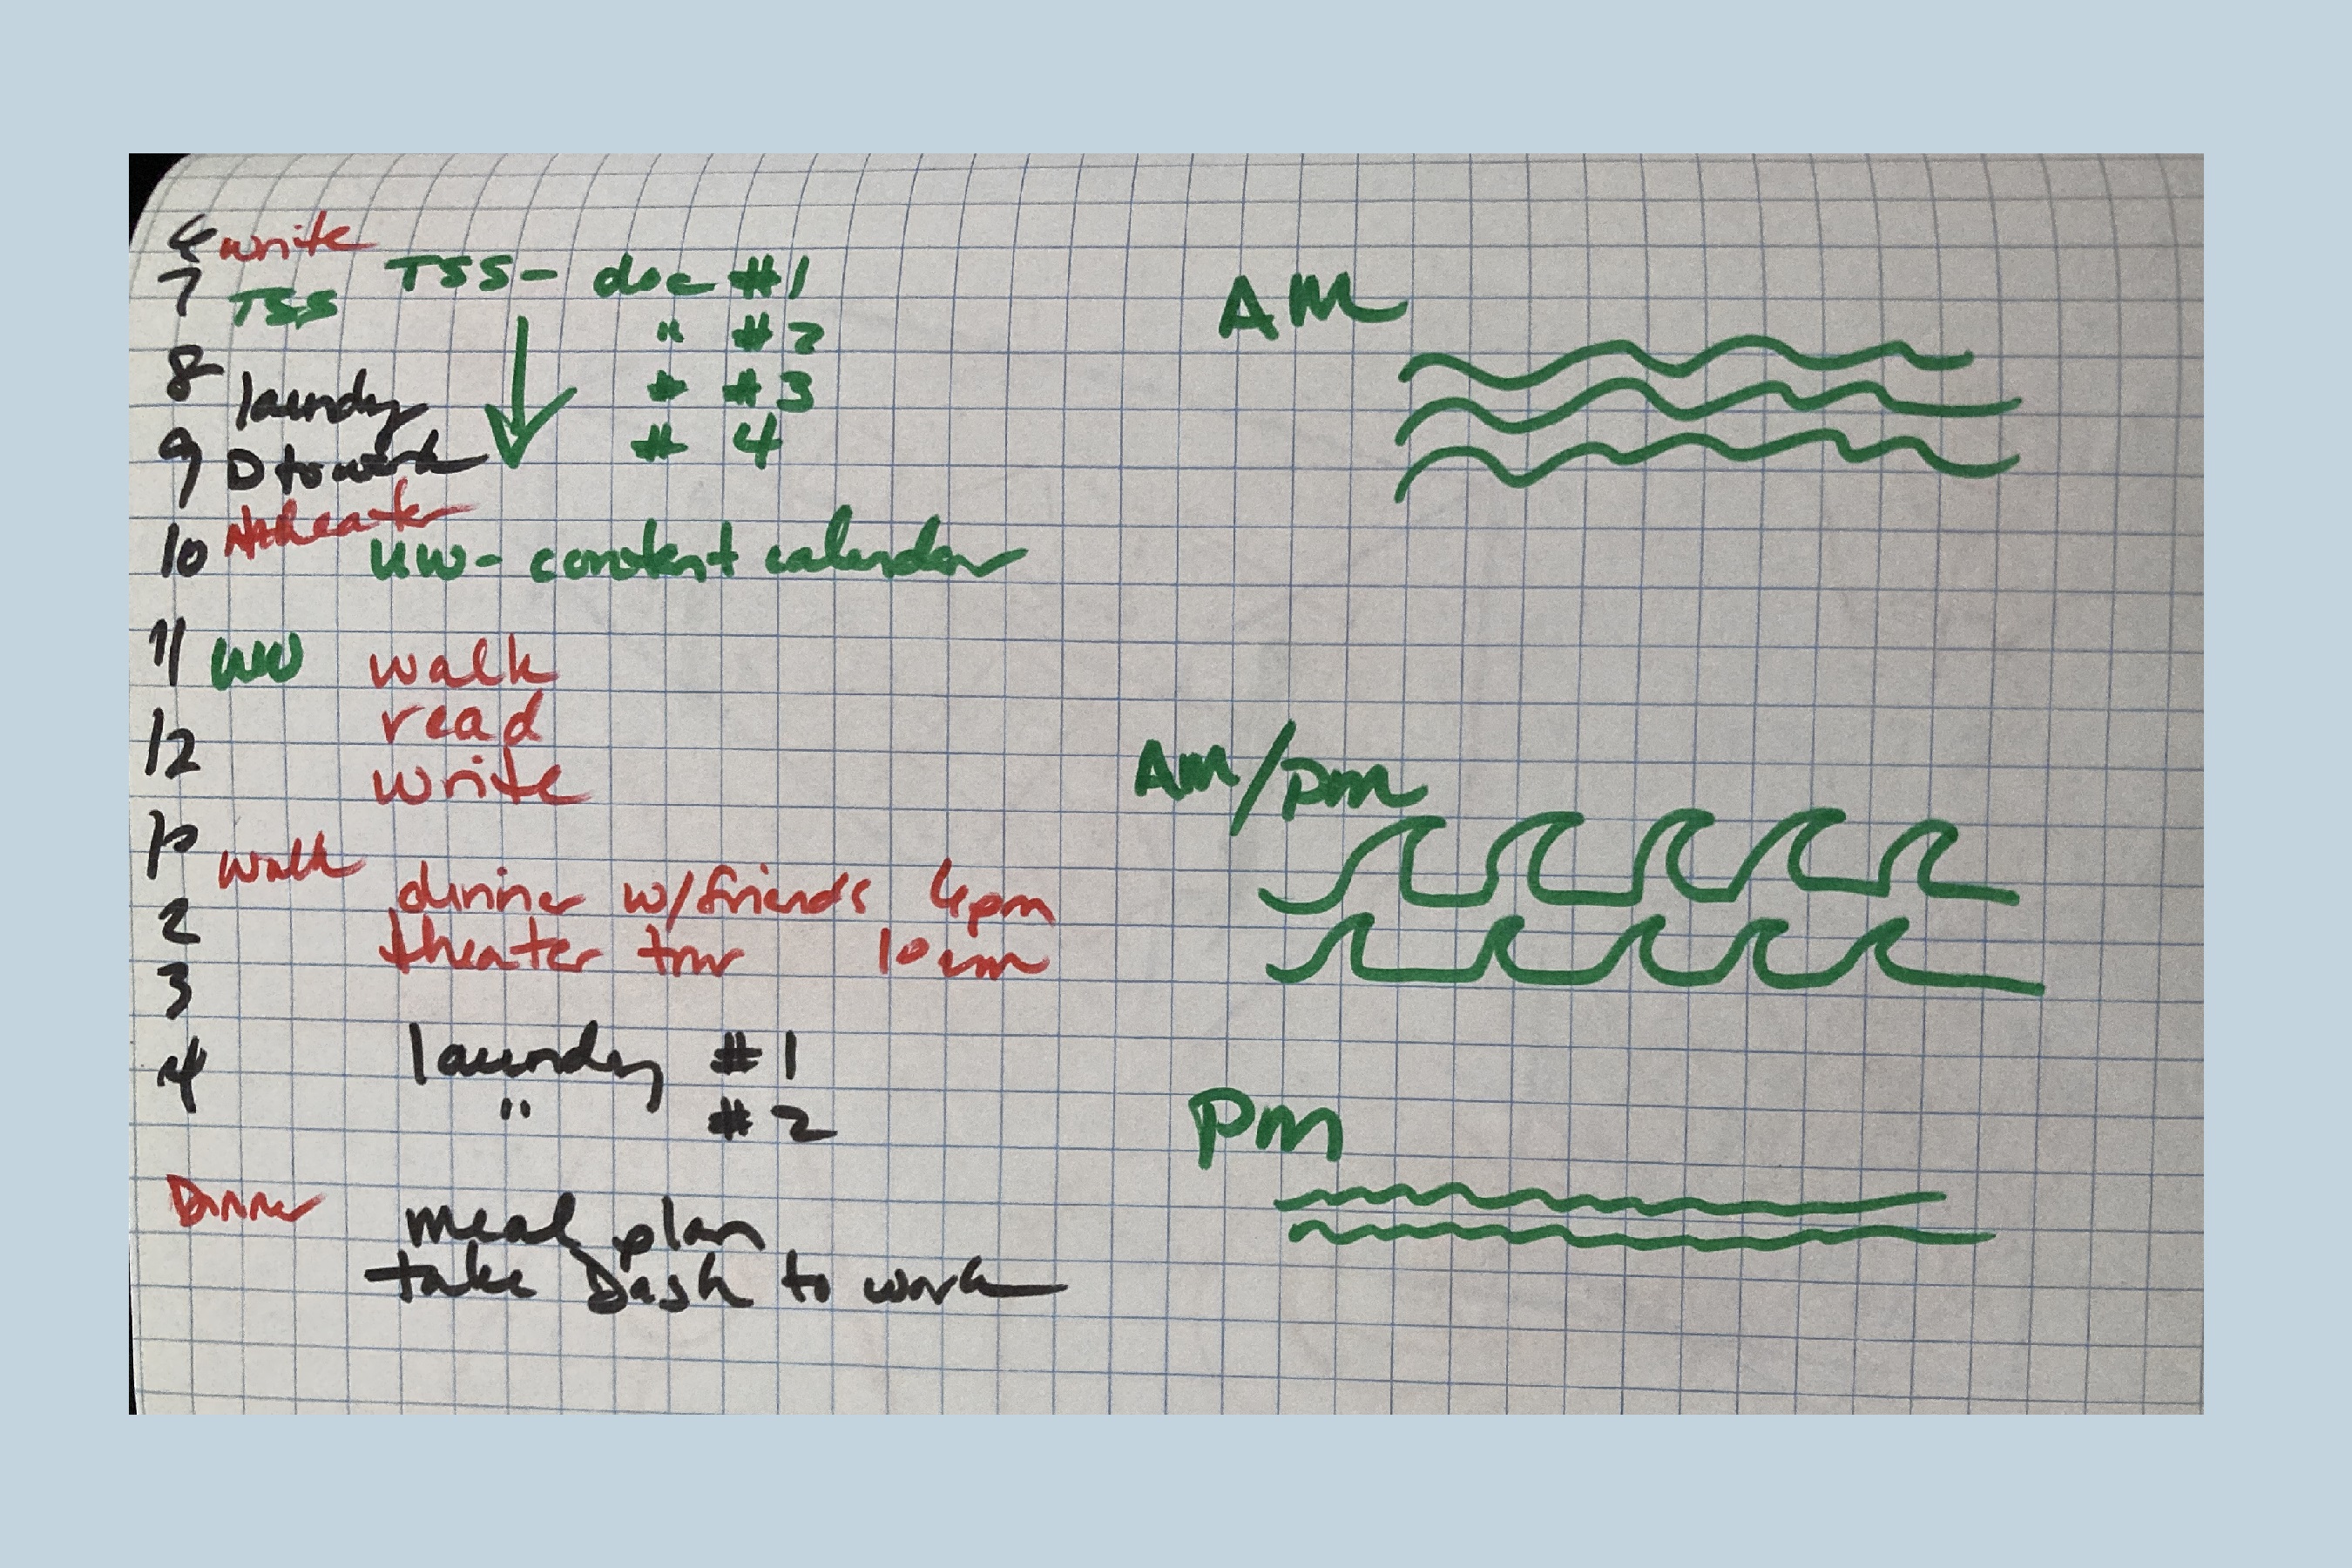 6 write
7 TSS
8 laundry
9 D to work
10 theater
11 UW
12
1p
walk
2
3
4
Dinner
TSS - doc #1
" #2
" #3
# 4
UW - content calendar
walk
read
write
dinner w/friends 6pm
theater tour 10am
laundry #1
" #2
meal plan
take Dash to work
AM
AM/PM
PM